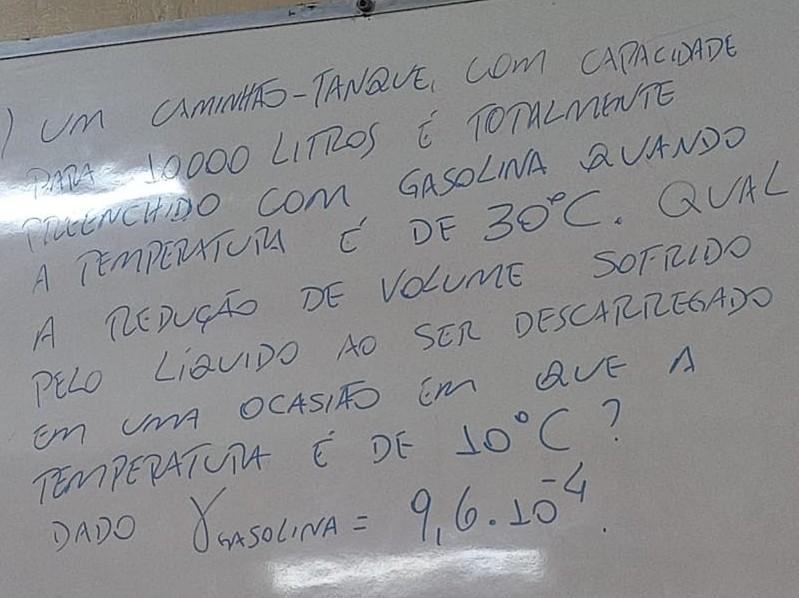 ) UM CAMINHÃO-TANQUE, COM CAPACIDADE
PARA 10000 LITROS É TOTALMENTE
PREENCHIDO COM GASOLINA QUANDO
A TEMPERATURA É DE 30°C. QUAL
A REDUÇÃO DE VOLUME SOFRIDO
PELO LÍQUIDO AO SER DESCARREGADO
EM UMA OCASIÃO EM QUE A
TEMPERATURA É DE 10°C?
DADO γGASOLINA = 9,6.10⁻⁴.